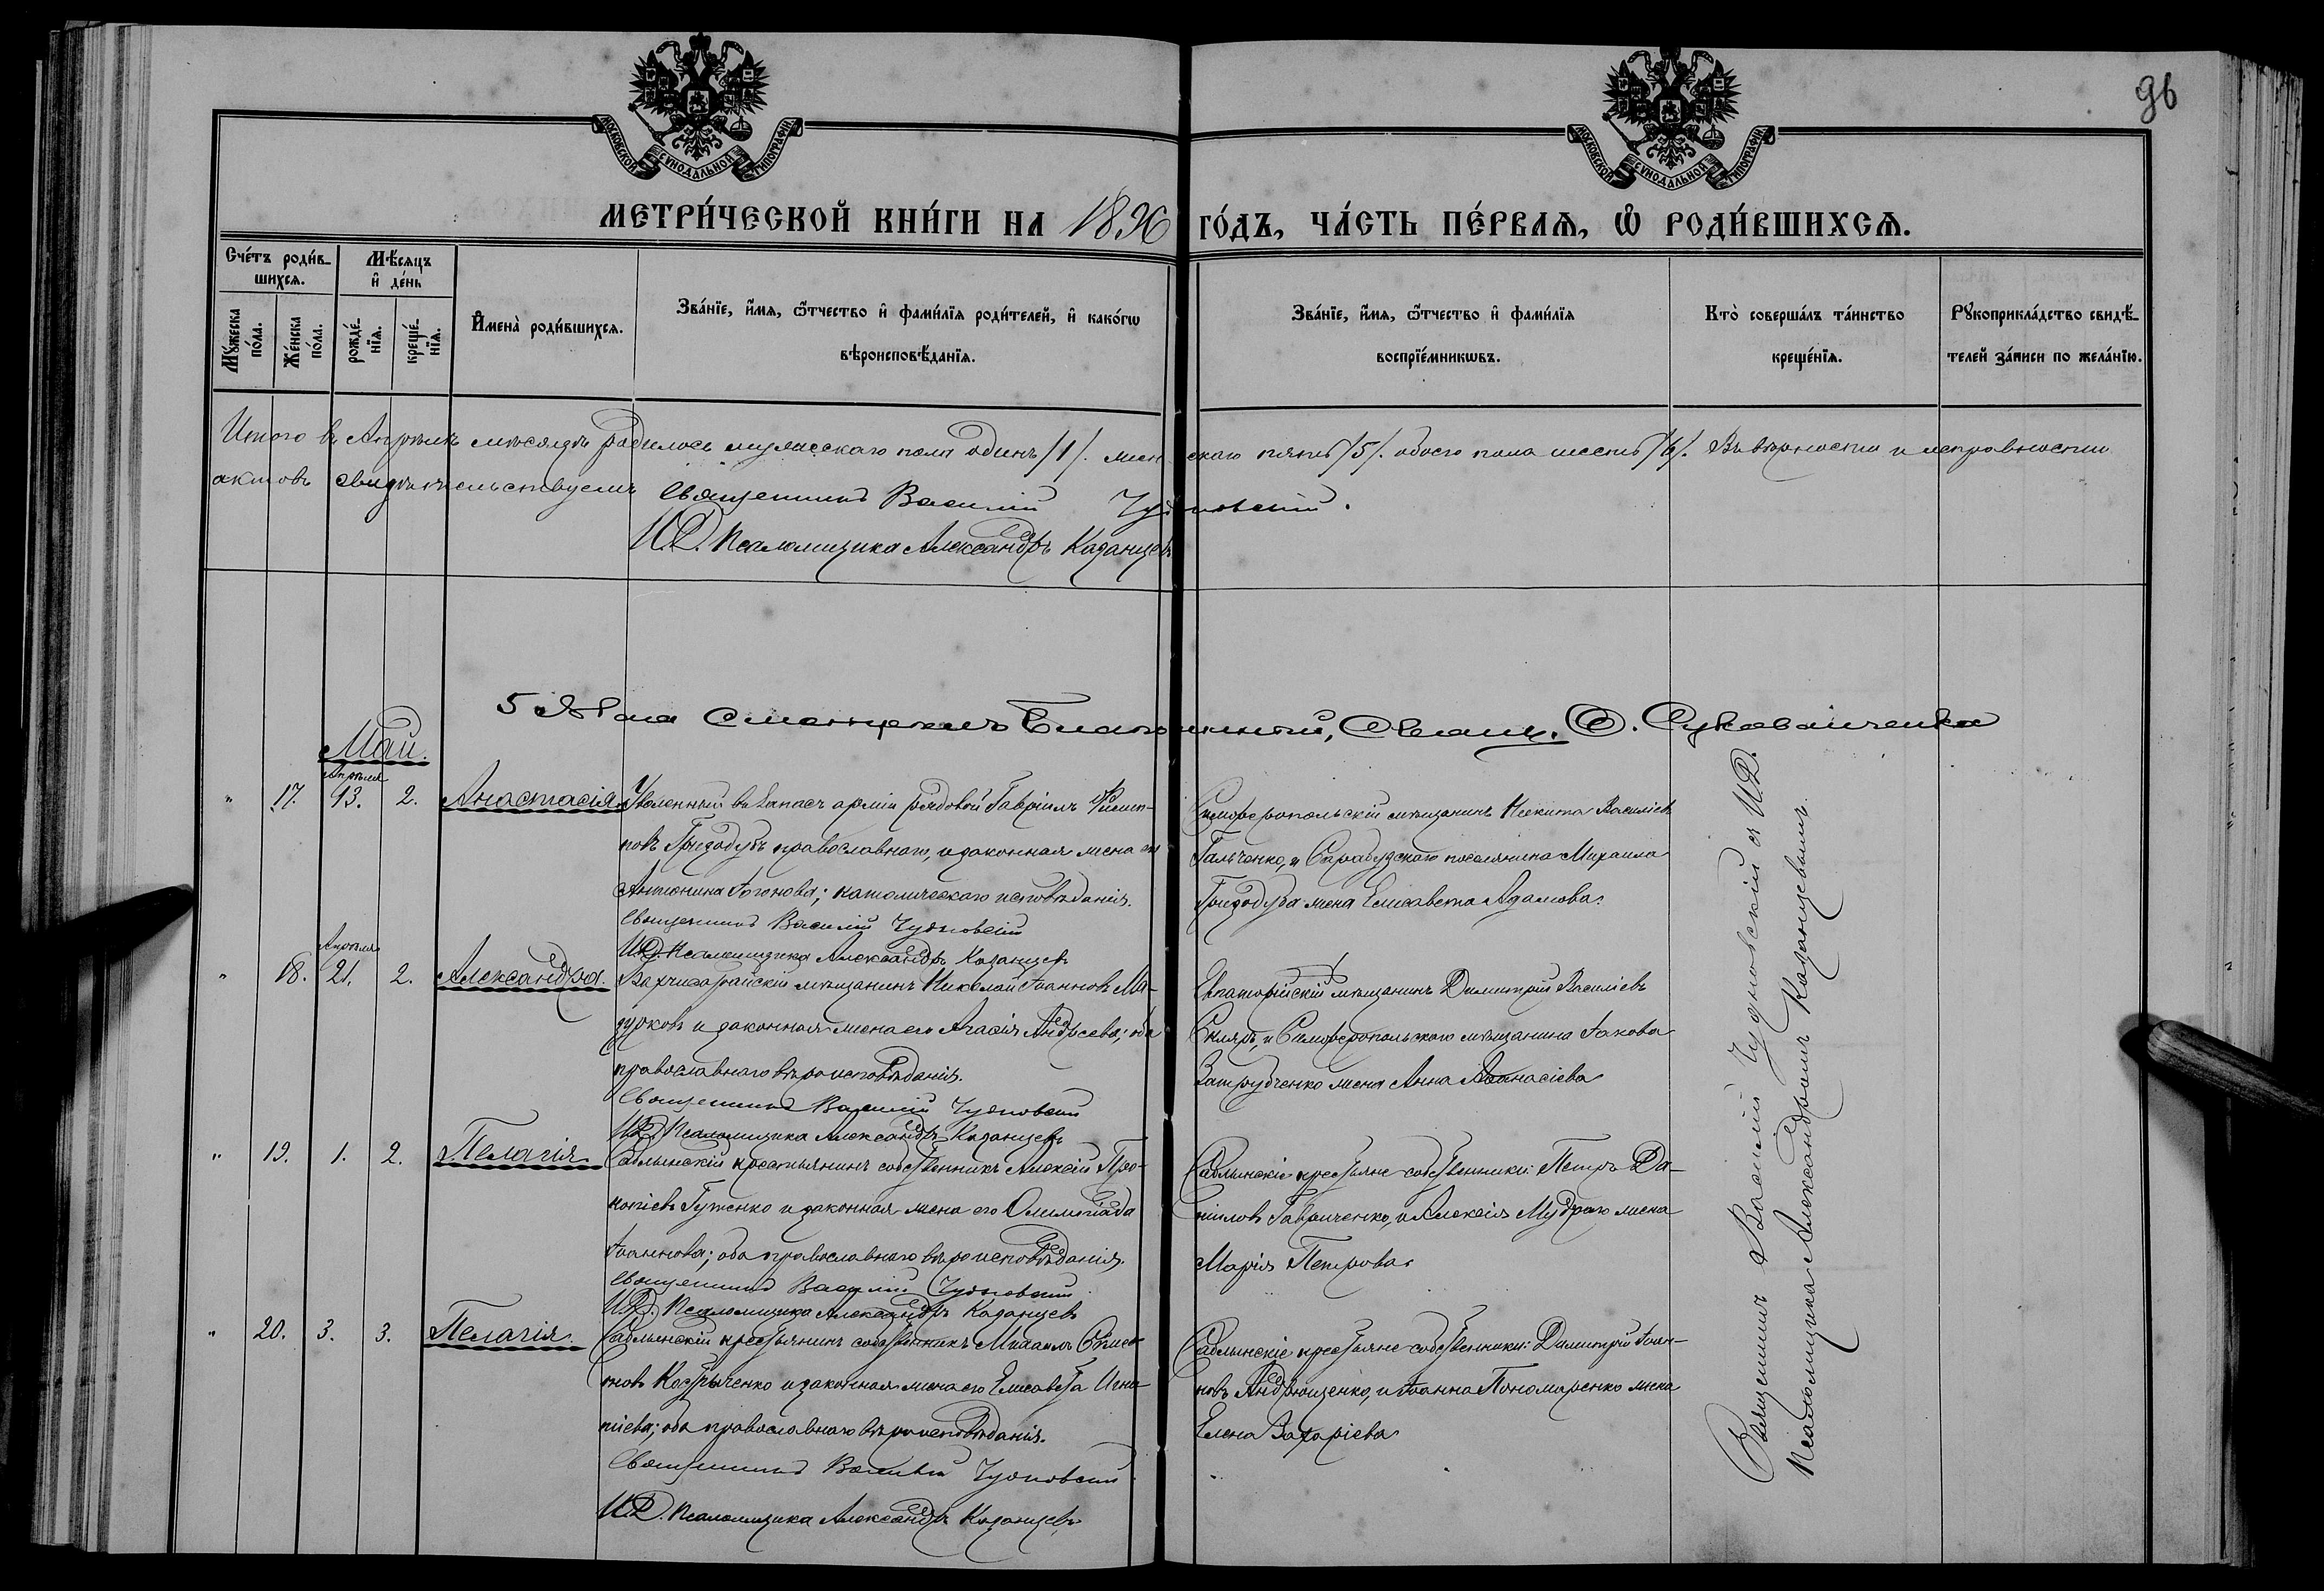 96
МОСКОВСКОЙ СѴНОДАЛЬНОЙ ТИПОГРАФІИ
МОСКОВСКОЙ СѴНОДАЛЬНОЙ ТИПОГРАФІИ
МЕТРИ́ЧЕСКОЙ КНИ́ГИ НА 1890 ГО́ДЪ, ЧА́СТЬ ПЕ́РВАѦ, Ѡ҆ РОДИ́ВШИХСѦ.
Сче́тъ роди́в-
шихсѧ.
Мꙋ́жеска по́ла.
Же́нска по́ла.
Мѣ́сѧцъ
и҆ де́нь
рожде́-
нїѧ.
креще́-
нїѧ.
И҆мена̀ роди́вшихсѧ.
Зва́нїе, и҆́мѧ, ѻ҆́тчество и҆ фами́лїѧ роди́телей, и҆ како́гѡ
вѣроисповѣ́данїѧ.
Зва́нїе, и҆́мѧ, ѻ҆́тчество и҆ фами́лїѧ
воспрїе́мникѡвъ.
Кто̀ соверша́лъ та́инство
креще́нїѧ.
Рꙋкоприкла́дство свидѣ́-
телей за́писи по жела́нїю.
Итого въ Апрѣлѣ мѣсяцѣ родилось мужескаго пола одинъ /1/. женскаго пять /5/. обоего пола шесть /6/. Въ вѣрности и исправности
актовъ свидѣтельствуемъ Священникъ Василій Чудновскій.
И.Д. Псаломщика Александръ Казанцевъ
Благочинный, Свящ. Ѳ.
Май.
" 17. Апрѣля 13. 2. Анастасія Уволенный въ запасъ арміи рядовой Гавріилъ Филип-
повъ Гризодубъ православнаго, и законная жена его
Антонина Антонова; католическаго исповѣданія.
Священникъ Василій Чудновскій
И.Д. Псаломщика Александръ Казанцевъ
Симферопольскій мѣщанинъ Никита Василіевъ
Гальченко, и Сарабузскаго поселянина Михаила
Гризодуба жена Елисавета Адамова.
" 18. Апрѣля 21. 2. Александра. Бахчисарайскій мѣщанинъ Николай Іоанновъ Ма-
зурковъ и законная жена его Агасія Андреева; оба
православнаго вѣроисповѣданія.
Священникъ Василій Чудновскій
И.Д. Псаломщика Александръ Казанцевъ
Евпаторійскій мѣщанинъ Димитрій Василіевъ
Скляръ, и Симферопольскаго мѣщанина Іакова
Жена Анна Аѳанасіева
" 19. 1. 2. Пелагія Саблынскій крестьянинъ собственникъ Алексій Про-
копіевъ Гуженко и законная жена его Олимпіада
Іоаннова; оба православнаго вѣроисповѣданія.
Священникъ Василій Чудновскій
И.Д. Псаломщика Александръ Казанцевъ
Саблынскіе крестьяне собственники: Петръ Да-
ніиловъ Гаврыченко, и Алексія Мудраго жена
Марія Петрова.
" 20. 3. 3. Пелагія. Саблынскій крестьянинъ собственникъ Михаилъ Симео-
новъ Костыченко и законная жена его Елисавета Игна-
тіева; оба православнаго вѣроисповѣданія.
Священникъ Василій Чудновскій
И.Д. Псаломщика Александръ Казанцевъ
Саблынскіе крестьяне собственники: Димитрій Іоан-
новъ Андрющенко, и Іоанна Пономаренко жена
Елена Захаріева
Священникъ Василій Чудновскій и И.Д.
Псаломщика Александромъ Казанцевымъ.